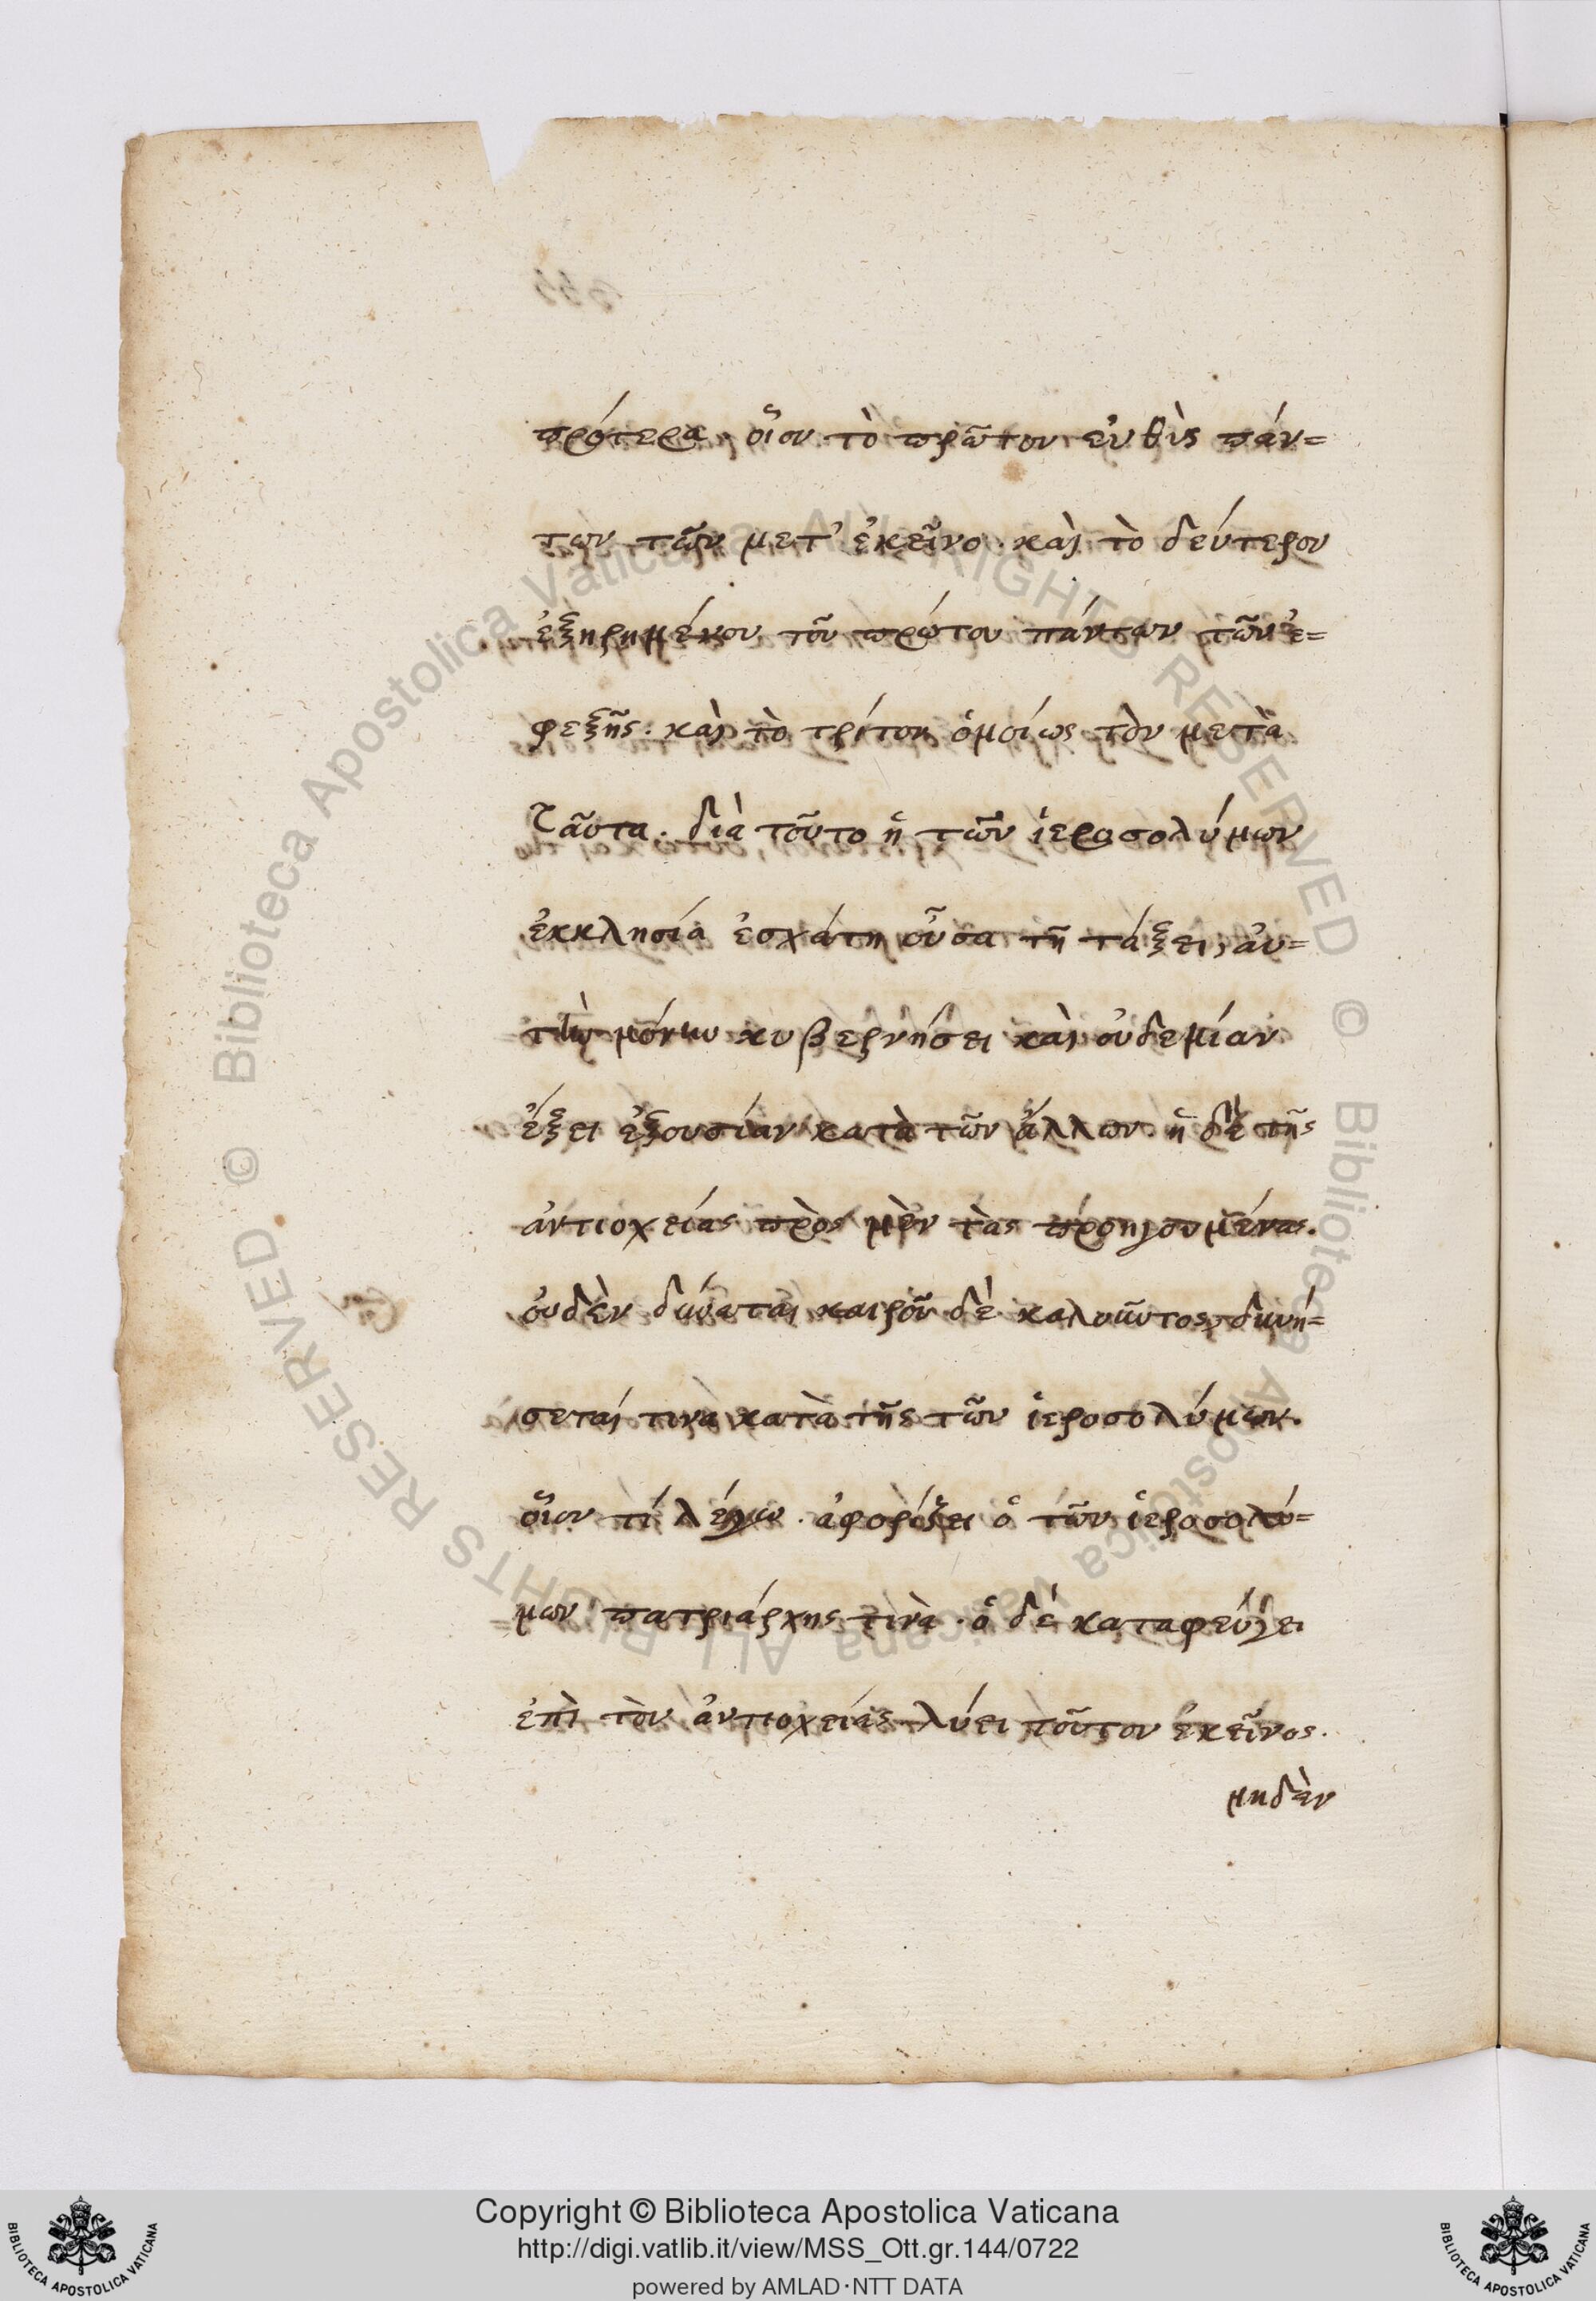 πρότερα, οἷον τὸ πρῶτον εὐθὺς πάν=
των τῶν μετ' ἐκεῖνο. καὶ τὸ δεύτερον
ἐξῃρημένου τοῦ πρώτου πάντων τῶν ἐ=
φεξῆς. καὶ τὸ τρίτον ὁμοίως τὸν μετὰ
ταῦτα. διὰ τοῦτο ἡ τῶν ἱεροσολύμων
ἐκκλησία ἐσχάτη οὖσα τῇ τάξει, αὐ=
τὴν μόνην κυβερνήσει καὶ οὐδεμίαν
ἕξει ἐξουσίαν κατὰ τῶν ἄλλων. ἡ δὲ τῆς
ἀντιοχείας πρὸς μὲν τὰς προηγουμένας.
οὐδὲν δύναται, καιροῦ δὲ καλοῦντος, δυνή=
σεταί τινα κατὰ τῆς τῶν ἱεροσολύμων.
οἷον τί λέγω. ἀφορίζει ὁ τῶν ἱεροσολύ=
μων πατριάρχης τινὰ. ὁ δὲ καταφεύγει
ἐπὶ τὸν ἀντιοχείας λύει τοῦτον ἐκεῖνος.
μηδὲν
Copyright © Biblioteca Apostolica Vaticana
http://digi.vatlib.it/view/MSS_Ott.gr.144/0722
powered by AMLAD·NTT DATA
BIBLIOTECA APOSTOLICA VATICANA
BIBLIOTECA APOSTOLICA VATICANA
© Biblioteca Apostolica Vaticana ALL RIGHTS RESERVED © Biblioteca Apostolica Vaticana ALL RIGHTS RESERVED